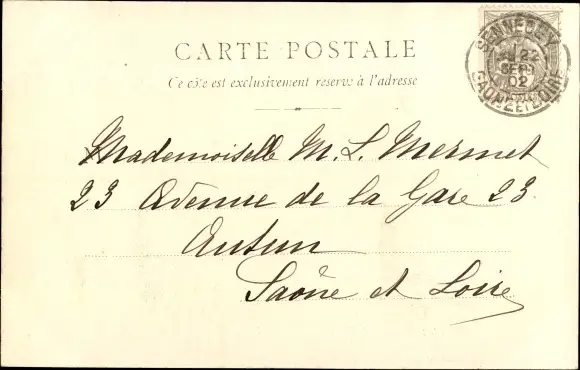 CARTE POSTALE
Ce côté est exclusivement réservé à l'adresse
SENNECEY
22
SEPT
02
SAONE ET LOIRE
Mademoiselle M. L. Mermet
23 Avenue de la Gare 23
Autun
Saône et Loire